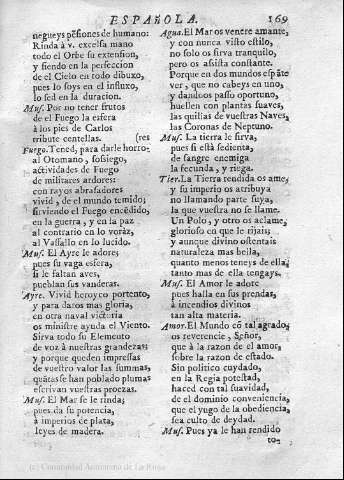 ESPAÑOLA. 169
negueys pẽsiones de humano:
Rinda à v. excelsa mano
todo el Orbe su extension,
y siendo en la perfeccion
de el Cielo en todo dibuxo,
pues lo soys en el influxo,
lo sed en la duracion.
Mus. Por no tener frutos
de el Fuego la esfera
à los pies de Carlos
tribute centellas. (res
Fuego. Tened, para darle horro-
al Otomano, sosiego,
actividades de Fuego
de militares ardores:
con rayos abrasadores
vivid, de el mundo temido;
sirviendo el Fuego encẽdido,
en la guerra, y en la paz
al contrario en lo voràz,
al Vassallo en lo lucido.
Mus. El Ayre le adore;
pues su vaga esfera,
si le faltan aves,
pueblan sus vanderas.
Ayre. Vivid heroyco portento,
y para daros mas gloria,
en otra naval victoria
os ministre ayuda el Viento.
Sirva todo su Elemento
de voz à nuestras grandezas;
y porque queden impressas
de vuestro valor las summas,
quãtas se han poblado plumas
escrivan vuestras proezas.
Mus. El Mar se le rinda;
pues da su potencia,
à imperios de plata,
leyes de madera.
Agua. El Mar os venere amante,
y con nunca visto estilo,
no solo os sirva tranquilo,
pero os asista constante.
Porque en dos mundos espãte
ver, que no cabeys en uno,
y dandoos passo oportuno,
huellen con plantas suaves,
las quillas de vuestras Naves,
las Coronas de Neptuno.
Mus. La tierra le sirva,
pues si està sedienta,
de sangre enemiga
la fecunda, y riega.
Tier. La Tierra rendida os ame,
y su imperio os atribuya
no llamando parte suya,
la que vuestra no se llame.
Un Polo, y otro os aclame,
glorioso en que le rijais;
y aunque divino ostentais
naturaleza mas bella,
quanto menos teneys de ella;
tanto mas de ella tengays.
Mus. El Amor le adore
pues halla en sus prendas,
à incendios divinos
tan alta materia.
Amor. El Mundo cõ tal agrado;
os reverencie, Señor,
que à la razon de el amor,
sobre la razon de estado.
Sin politico cuydado,
en la Regia potestad,
haced con tal suavidad,
de el dominio conveniencia,
que el yugo de la obediencia,
sea culto de deydad.
Mus. Pues ya le han rendido
to-
(c) Comunidad Autónoma de La Rioja